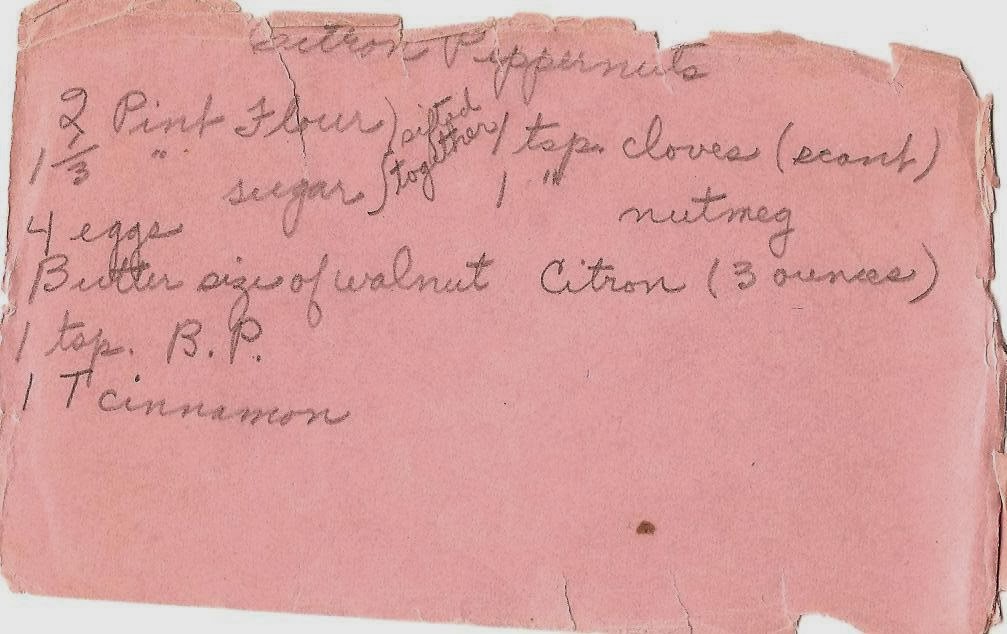 Citron Peppernuts
2 Pint Flour ) sifted together 1 tsp. cloves (scant)
1 1/3 " sugar ) 1 " nutmeg
4 eggs
Butter size of walnut Citron (3 ounces)
1 tsp. B.P.
1 T cinnamon